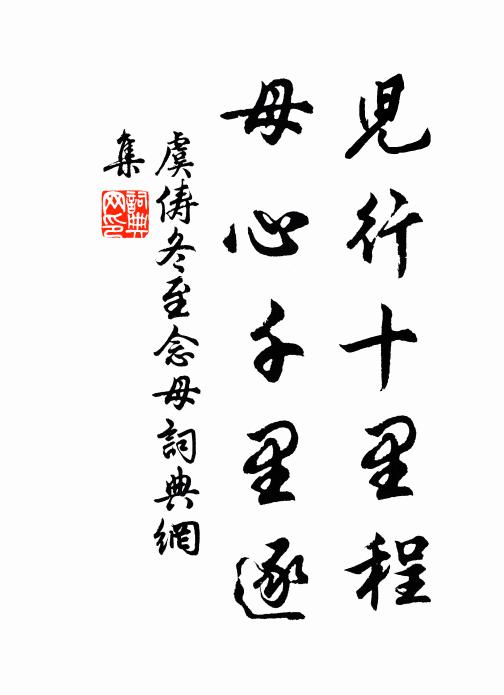 兒行十里程
母心千里逐
虞儔冬至念母詞典網
集
詞典
网印